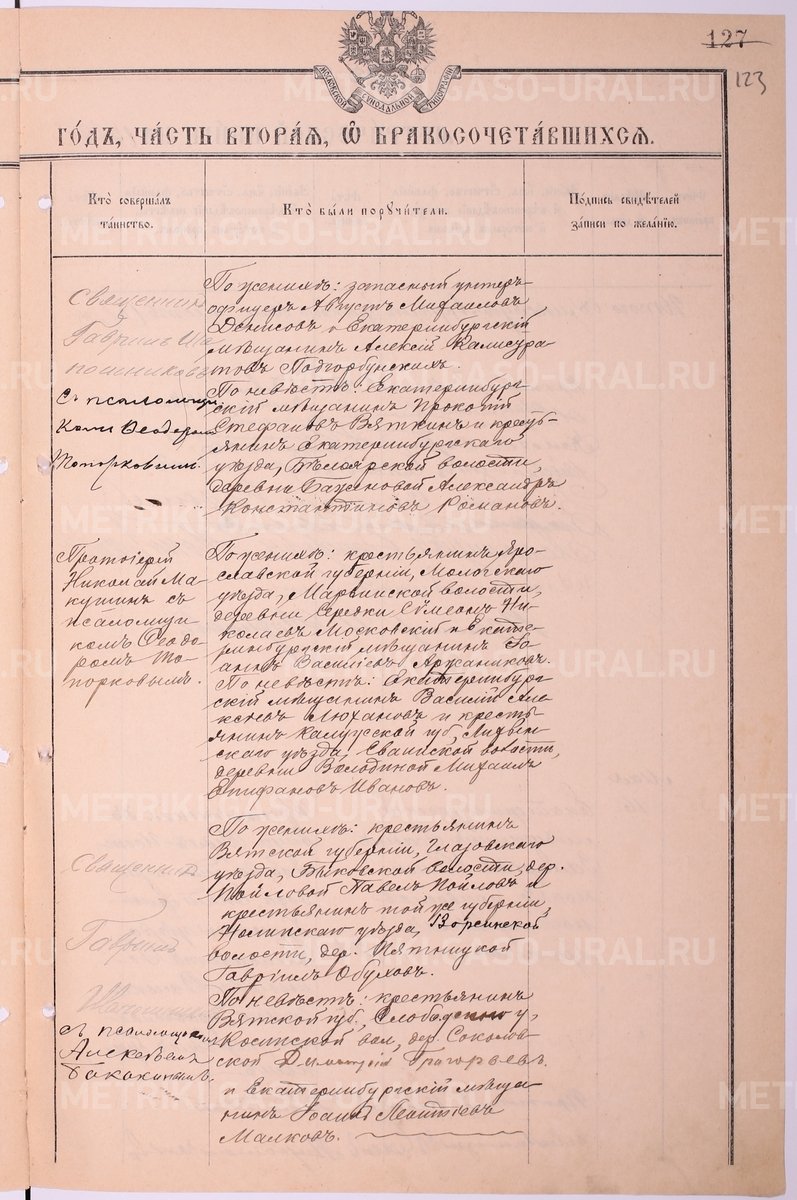 127
123
МОСКОВСКОЙ СѴНОДАЛЬНОЙ ТИПОГРАФІИ
ГО́ДЪ, ЧА́СТЬ ВТОРА́Я, Ѽ БРАКОСОЧЕТА́ВШИХСЯ.
Кто̀ соверша́лъ
та́инство.
Кто̀ бы́ли порꙋчи́тели.
По́дпись свидѣ́телей
за́писи по жела́нїю.
Священник
Гавриил
с псаломщи
комъ Ѳеодоромъ
Топорковымъ.
По женихѣ: запасный унтеръ-
офицеръ Августъ Михаиловъ
Денисовъ и Екатеринбургскій
мѣщанинъ Алексій Калистра-
товъ Подгорбунскихъ.
По невѣстѣ: Екатеринбург-
скій мѣщанинъ Прокопій
Стефановъ Вяткинъ и кресть-
янинъ Екатеринбургскаго
уѣзда, Бѣлоярской волости,
деревни Баженовой Александръ
Константиновъ Романовъ.
Протоіерей
Николай Ма-
кушинъ съ
псаломщи-
комъ Ѳеодо-
ромъ То-
порковымъ.
По женихѣ: крестьянинъ Яро-
славской губерніи, Мологскаго
уѣзда, Марьинской волости,
деревни Середки Сѵмеонъ Ни-
колаевъ Московскій и Екате-
ринбургскій мѣщанинъ Іо-
аннъ Василіевъ Аржанниковъ.
По невѣстѣ: Екатеринбург-
скій мѣщанинъ Василій Але-
ксіевъ Люхановъ и кресть-
янинъ Калужской губ., Лихвин-
скаго уѣзда, волости,
деревни Володиной Михаилъ
Епифановъ Ивановъ.
Священник
Гавриил
съ псаломщикомъ
Алексѣемъ
Бабакинымъ.
По женихѣ: крестьянинъ
Вятской губерніи, Глазовскаго
уѣзда, Быковской волости, дер.
Пойловой Павелъ Пойловъ и
крестьянинъ той же губерніи,
Нолинскаго уѣзда, Ворсинской
волости, дер. Пятницкой
Гавріилъ Обуховъ.
По невѣстѣ: крестьянинъ
Вятской губ., Слободского у.,
Косинской вол., дер. Соколов-
ской Дымитрій Григорьевъ
и Екатеринбургскій мѣща-
нинъ Іоаннъ Леонтіевъ
Малковъ.
METRIKI.GASO-URAL.RU